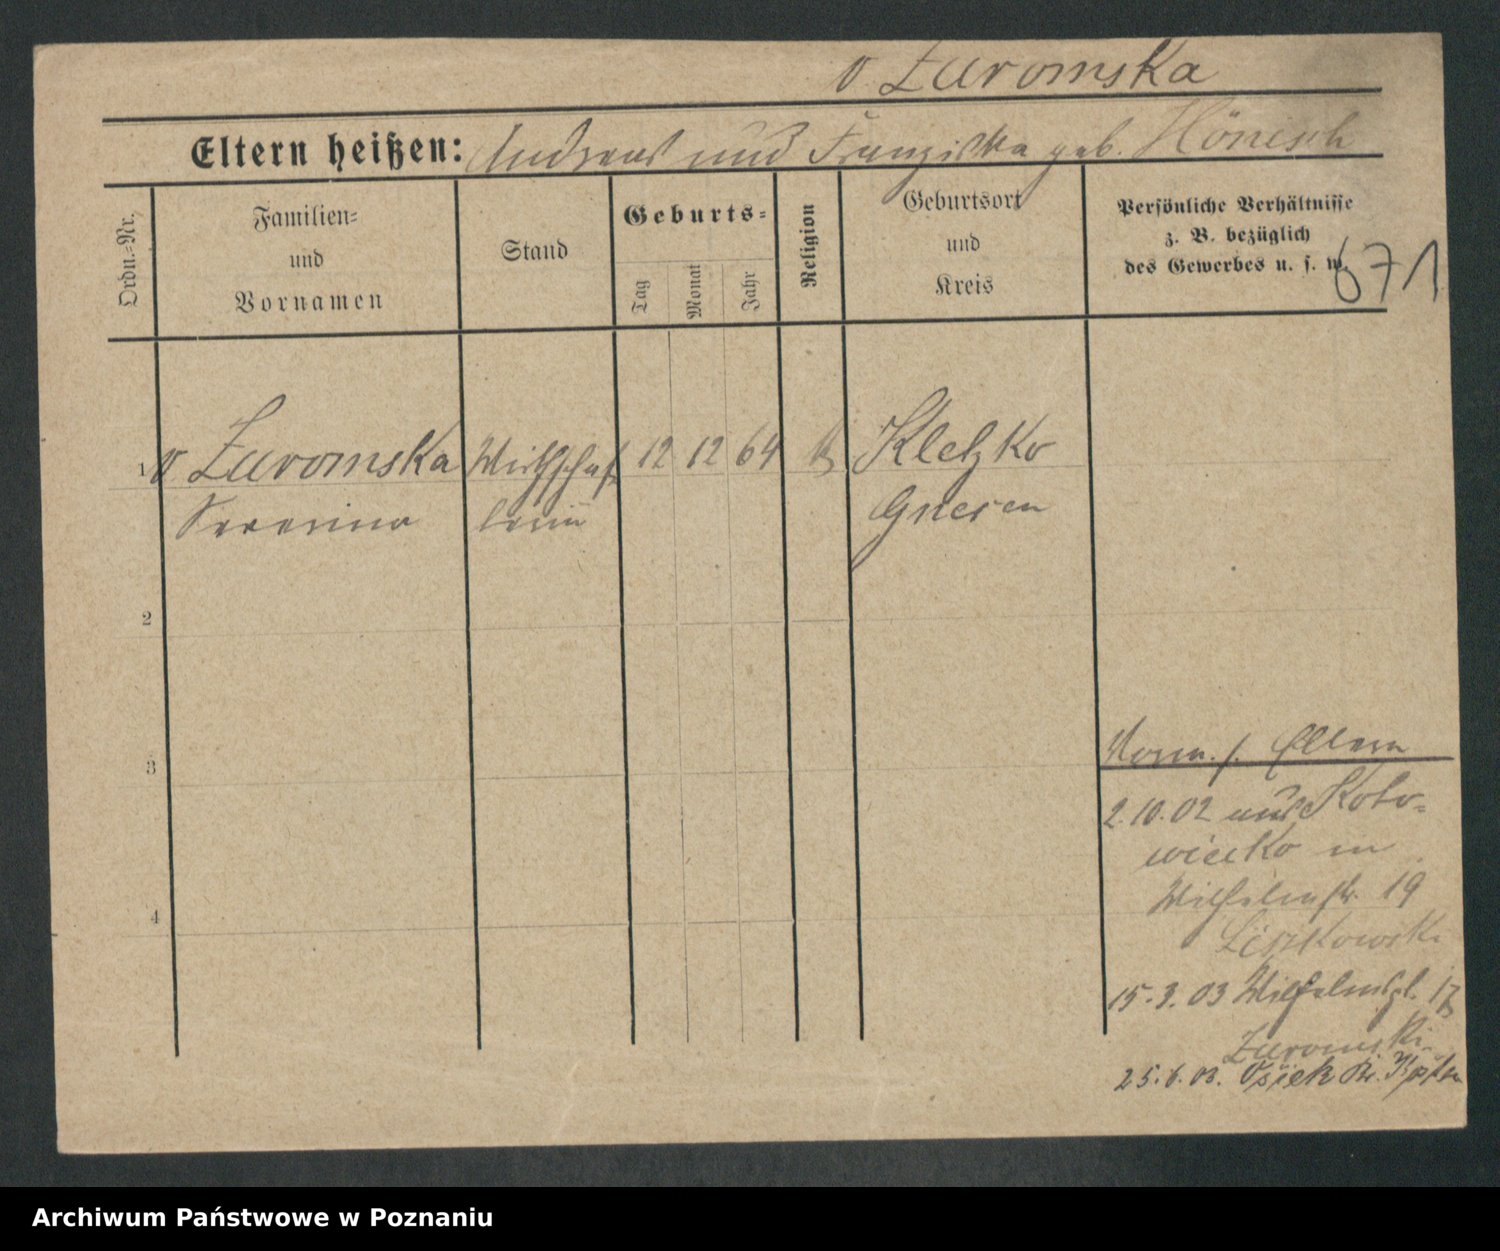 v. Zuromska
Eltern heißen: Andreas und Franziska geb. Hönesch
Ordn.=Nr.
Familien=
und
Vornamen
Stand
Geburts=
Tag
Monat
Jahr
Religion
Geburtsort
und
Kreis
Persönliche Verhältnisse
z. B. bezüglich
des Gewerbes u. s. w.
671
1 v. Zuromska Wirthschaf 12 12 64 k Kletzko
Severina terin Gnesen
2
3
Norm. f. Eltern
2.10.02 aus Koto=
wiecko in
4
Wilhelmstr. 19
Liszkowski
15.3.03 Wilhelmspl. 17
Zuromski
25.6.03. Osiek Kr.
Archiwum Państwowe w Poznaniu